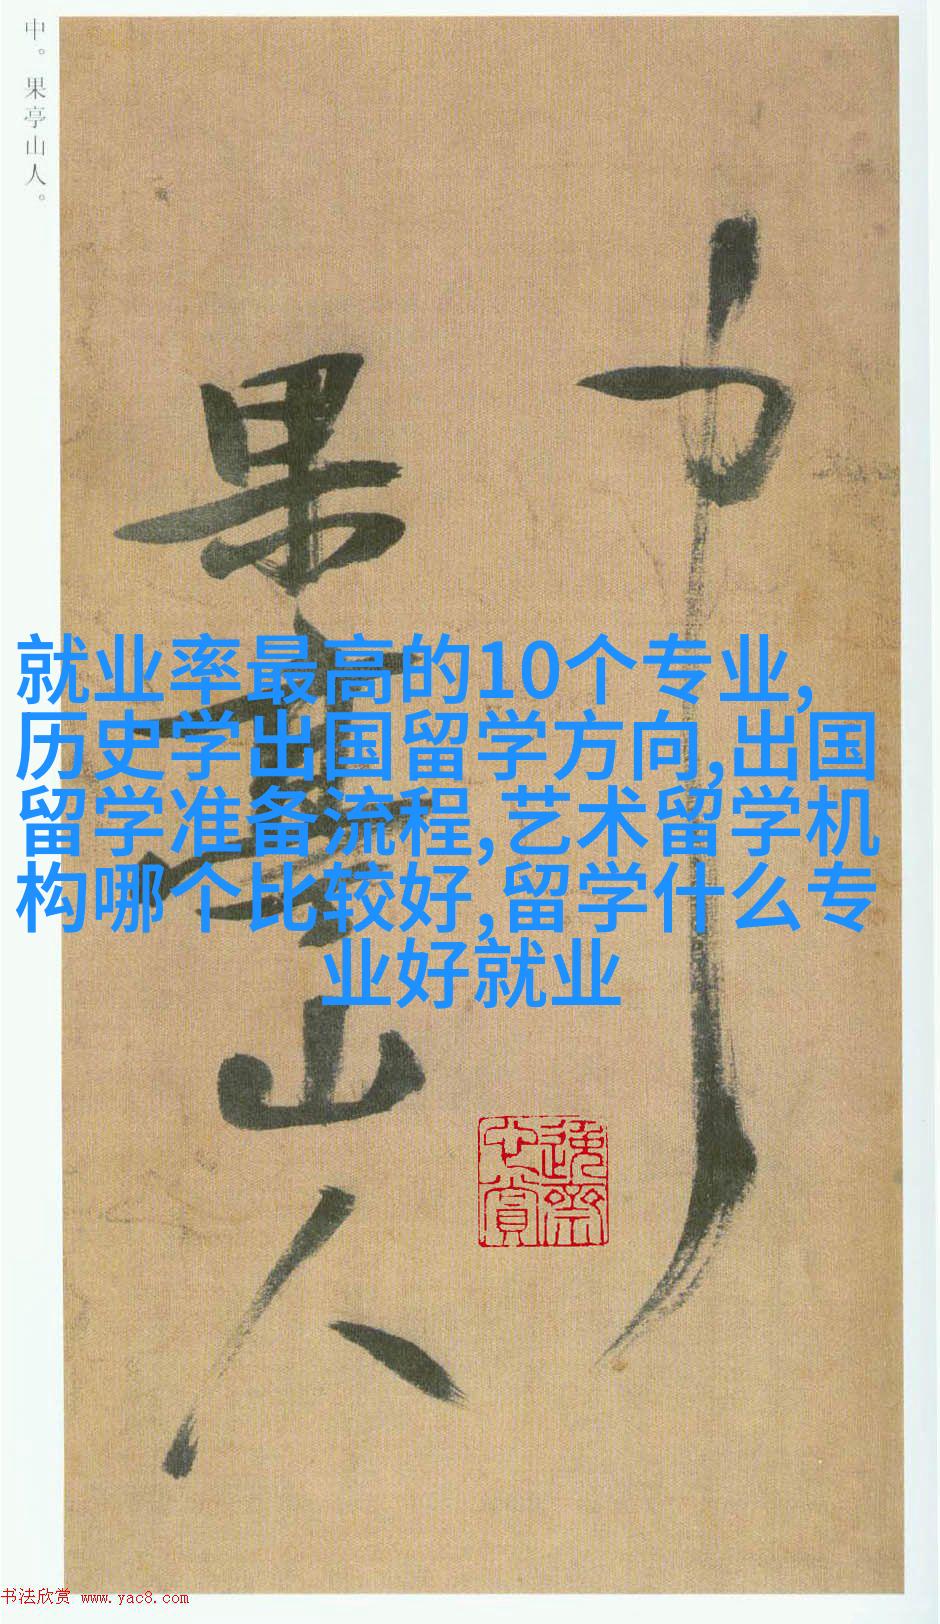 中。果亭山人。
中
果亭山人
就业率最高的10个专业,
历史学出国留学方向,出国
留学准备流程,艺术留学机
构哪个比较好,留学什么专
业好就业
书法欣赏 www.yac8.com